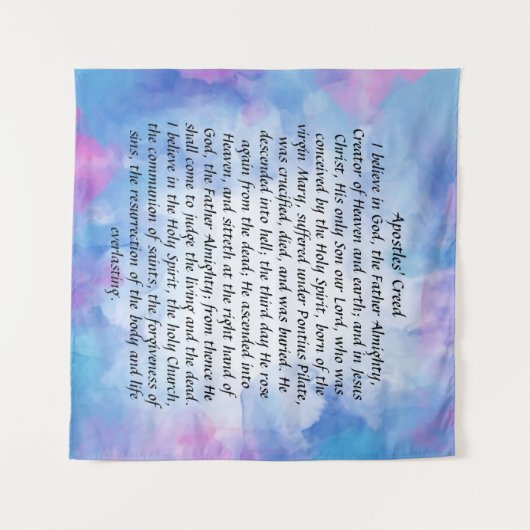 Apostles' Creed
I believe in God, the Father Almighty,
Creator of Heaven and earth; and in Jesus
Christ, His only Son our Lord, who was
conceived by the Holy Spirit, born of the
virgin Mary, suffered under Pontius Pilate,
was crucified, died, and was buried. He
descended into hell; the third day He rose
again from the dead; He ascended into
Heaven, and sitteth at the right hand of
God, the Father Almighty; from thence He
shall come to judge the living and the dead.
I believe in the Holy Spirit, the holy Church,
the communion of saints, the forgiveness of
sins, the resurrection of the body and life
everlasting.